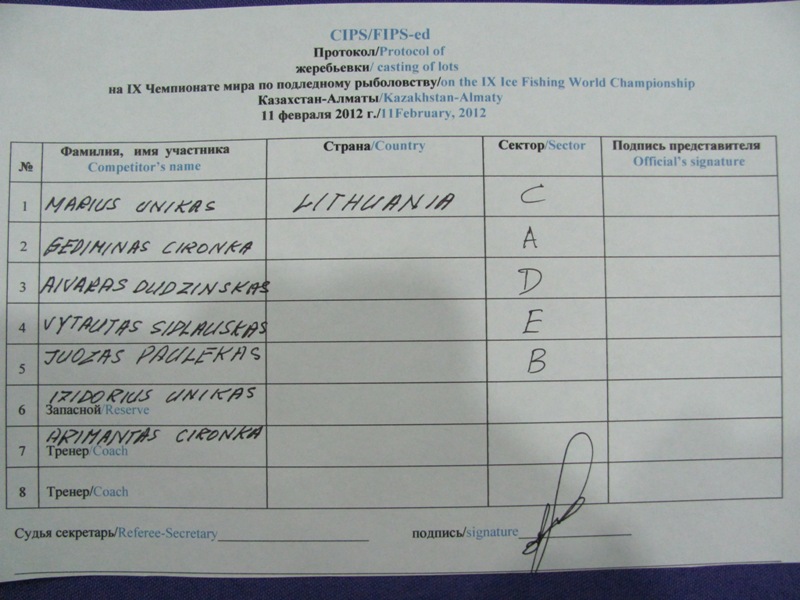 CIPS/FIPS-ed
Протокол/Protocol of
жеребьевки/ casting of lots
на IX Чемпионате мира по подледному рыболовству/on the IX Ice Fishing World Championship
Казахстан-Алматы/Kazakhstan-Almaty
11 февраля 2012 г./11February, 2012
№ Фамилия, имя участника Страна/Country Сектор/Sector Подпись представителя
Competitor's name Official's signature
1 MARIUS UNIKAS LITHUANIA C
2 GEDIMINAS CIRONKA A
3 AIVARAS DUDZINSKAS D
4 VYTAUTAS SIDLAUSKAS E
5 JUOZAS PAULEKAS B
IZIDORIUS UNIKAS
6 Запасной/Reserve
ARIMANTAS CIRONKA
7 Тренер/Coach
8 Тренер/Coach
Судья секретарь/Referee-Secretary подпись/signature